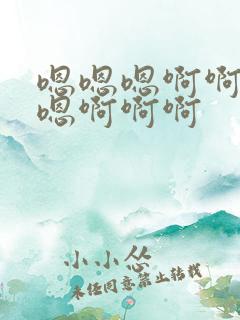 嗯嗯嗯啊啊
嗯啊啊啊
小小怂
未经同意禁止转载